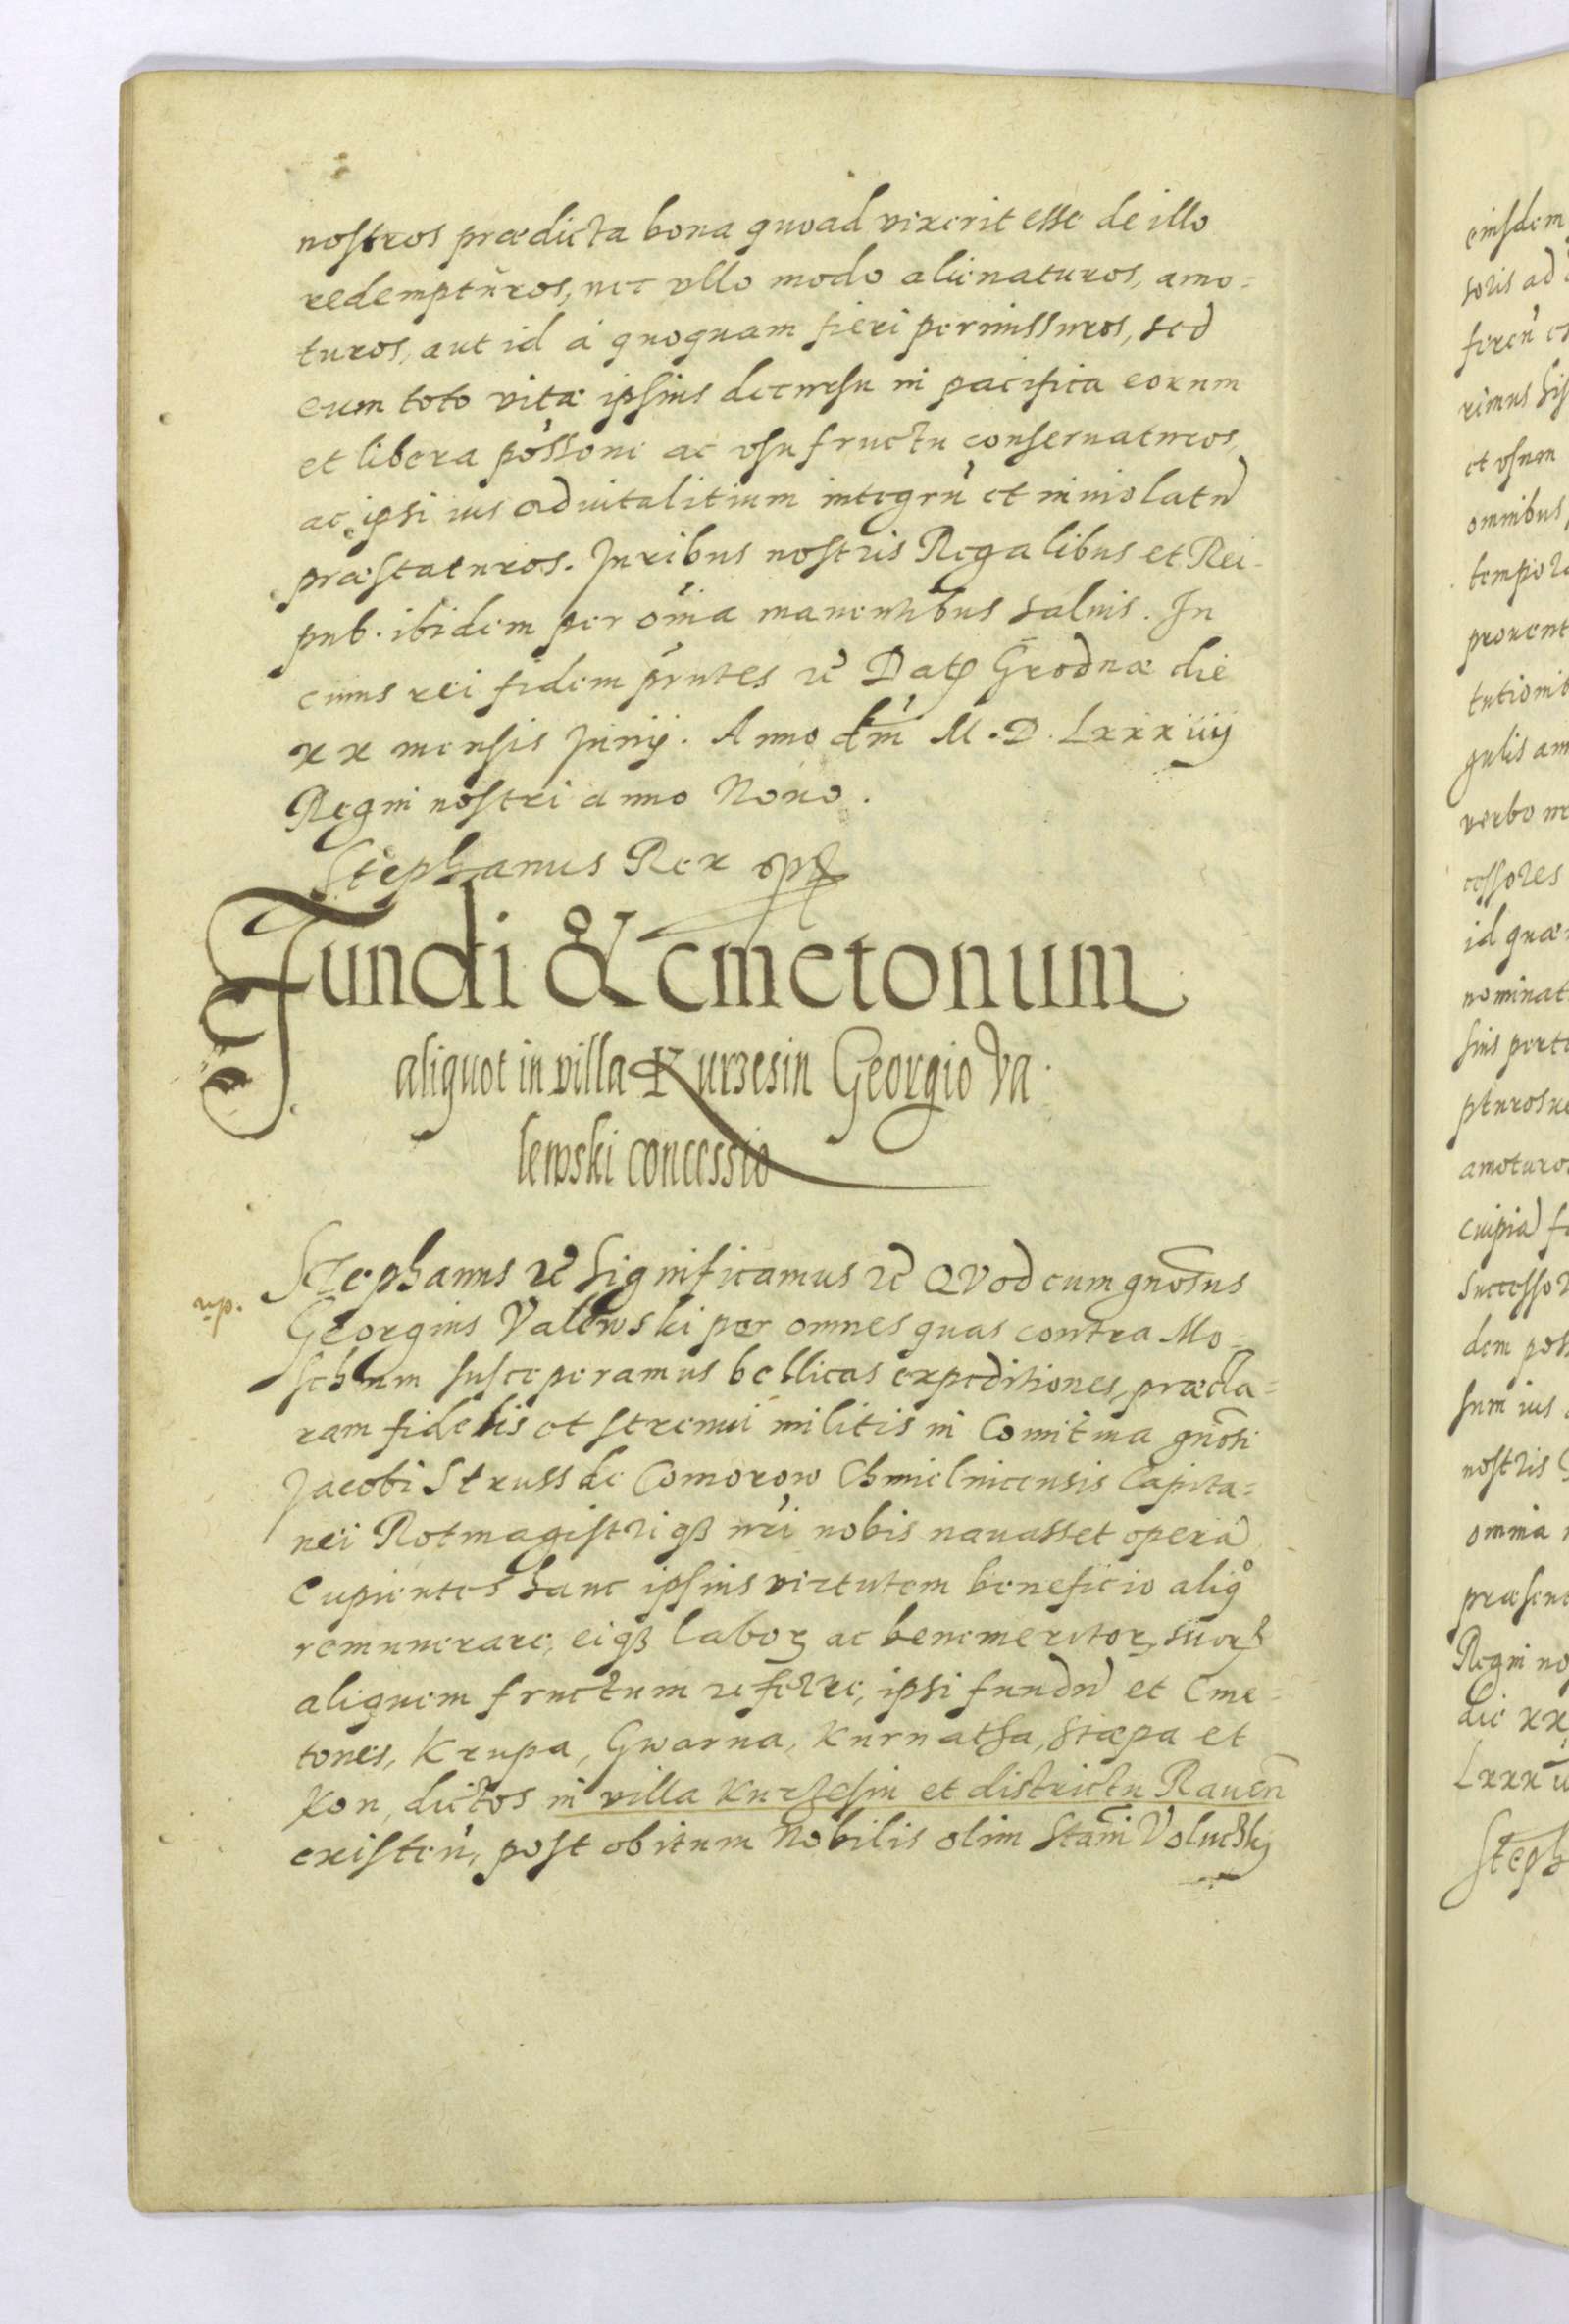 nostros prædicta bona quoad vixerit esse de illo
redempturos, nec vllo modo alienaturos, amo=
turos, aut id á quoquam fieri permissuros, sed
eum toto vitæ ipsius decursu in pacifica eorum
et libera possone ac vsu fructu conseruaturos,
ac ipsi ius aduitalitium integrū et inuiolatū
præstaturos. Iuribus nostris Regalibus et Rei-
pub. ibidem per oīa manentibus saluis. In
cuius rei fidem prntes etc̄ Datę Grodnæ die
xx mensis Junij. Anno dm̄ M.D.Lxxxiiij
Regni nostri anno Nono.
Stephanus Rex
Fundi & cmetonum
aliquot in villa Kurzesin Georgio Va-
lewski concessio
Stephanus etc̄ Significamus etc̄ QVod cum gnōsus
Georgius Valewski per omnes quas contra Mo=
schum susceperamus bellicas expeditiones, præcla=
ram fidelis et strenui militis in Comitiua gnōsi
Jacobi Struss de Comorow Chmielnicensis Capita=
nei Rotmagistriqꝫ nrī nobis nauasset operā
Cupientes hanc ipsius virtutem beneficio aliqͦ
remunerare, eiqꝫ laboꝝ ac benemeritoꝝ suoꝝ
aliquem fructum referre, ipsi fundū et Cme=
tones, Krupa, Gwarna, Kurnatha, Stæpa et
Kon, dictos in villa Kurzesin et districtu Rauen̄
existen̄, post obitum Nobilis olim Stanī Voluczkj
np.
eiusdem
soris ad
feren̄
rimus
et vsum
omnibus,
prouent
gulis am
verbo
cessores
id quæ
nominat
pturos
amoturo
cuipiā
Successor
dem poss
sum ius
nostris
omnia
præsent
Regni no
die xx
Lxxx
Steph